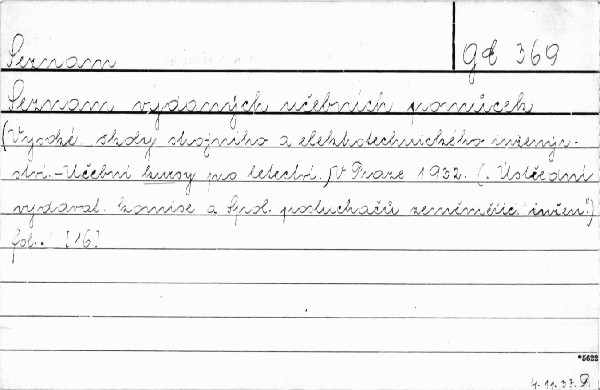 Seznam
gE 369
Seznam vydaných učebních pomůcek
(Vysoké školy strojního a elektrotechnického inženýr-
ství.-Učební kursy pro letectví.) V Praze 1932. (. Ústřední
vydavat. komise a Spol. posluchačů zeměměřic. inžen.")
fol.. [16.]
*5622
4.11.33.